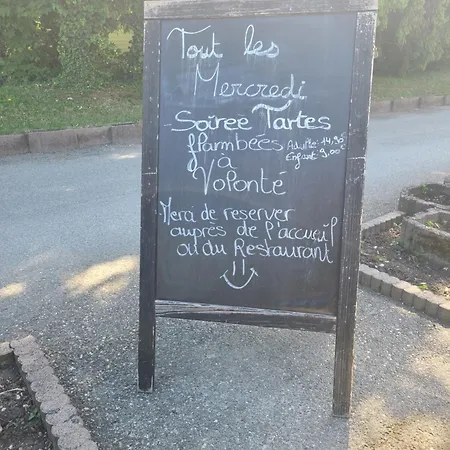 Tout les
Mercredi
Soirée Tartes
flambées Adulte: 14,90€
à Enfant: 9.00€
Volonté
Merci de reserver
auprès de l'accueil
où du Restaurant